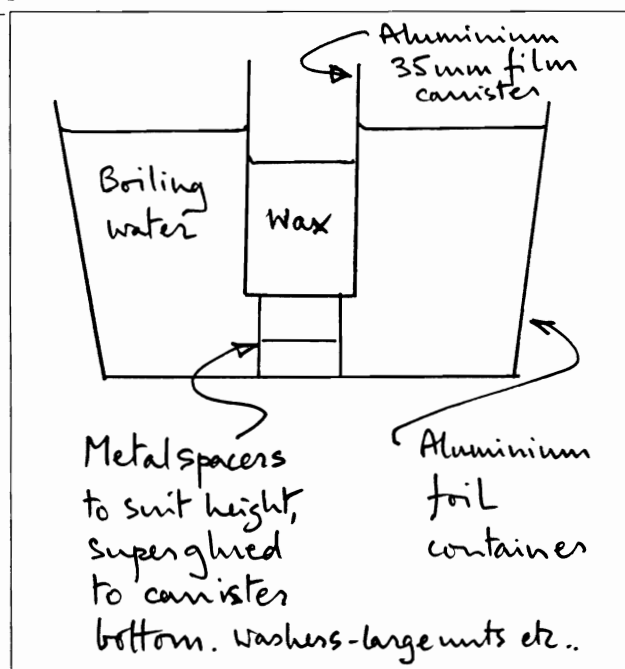 Aluminium
35mm film
canister
Boiling
water
Wax
Metal spacers
to suit height,
superglued
to canister
bottom. washers-large nuts etc..
Aluminium
foil
container